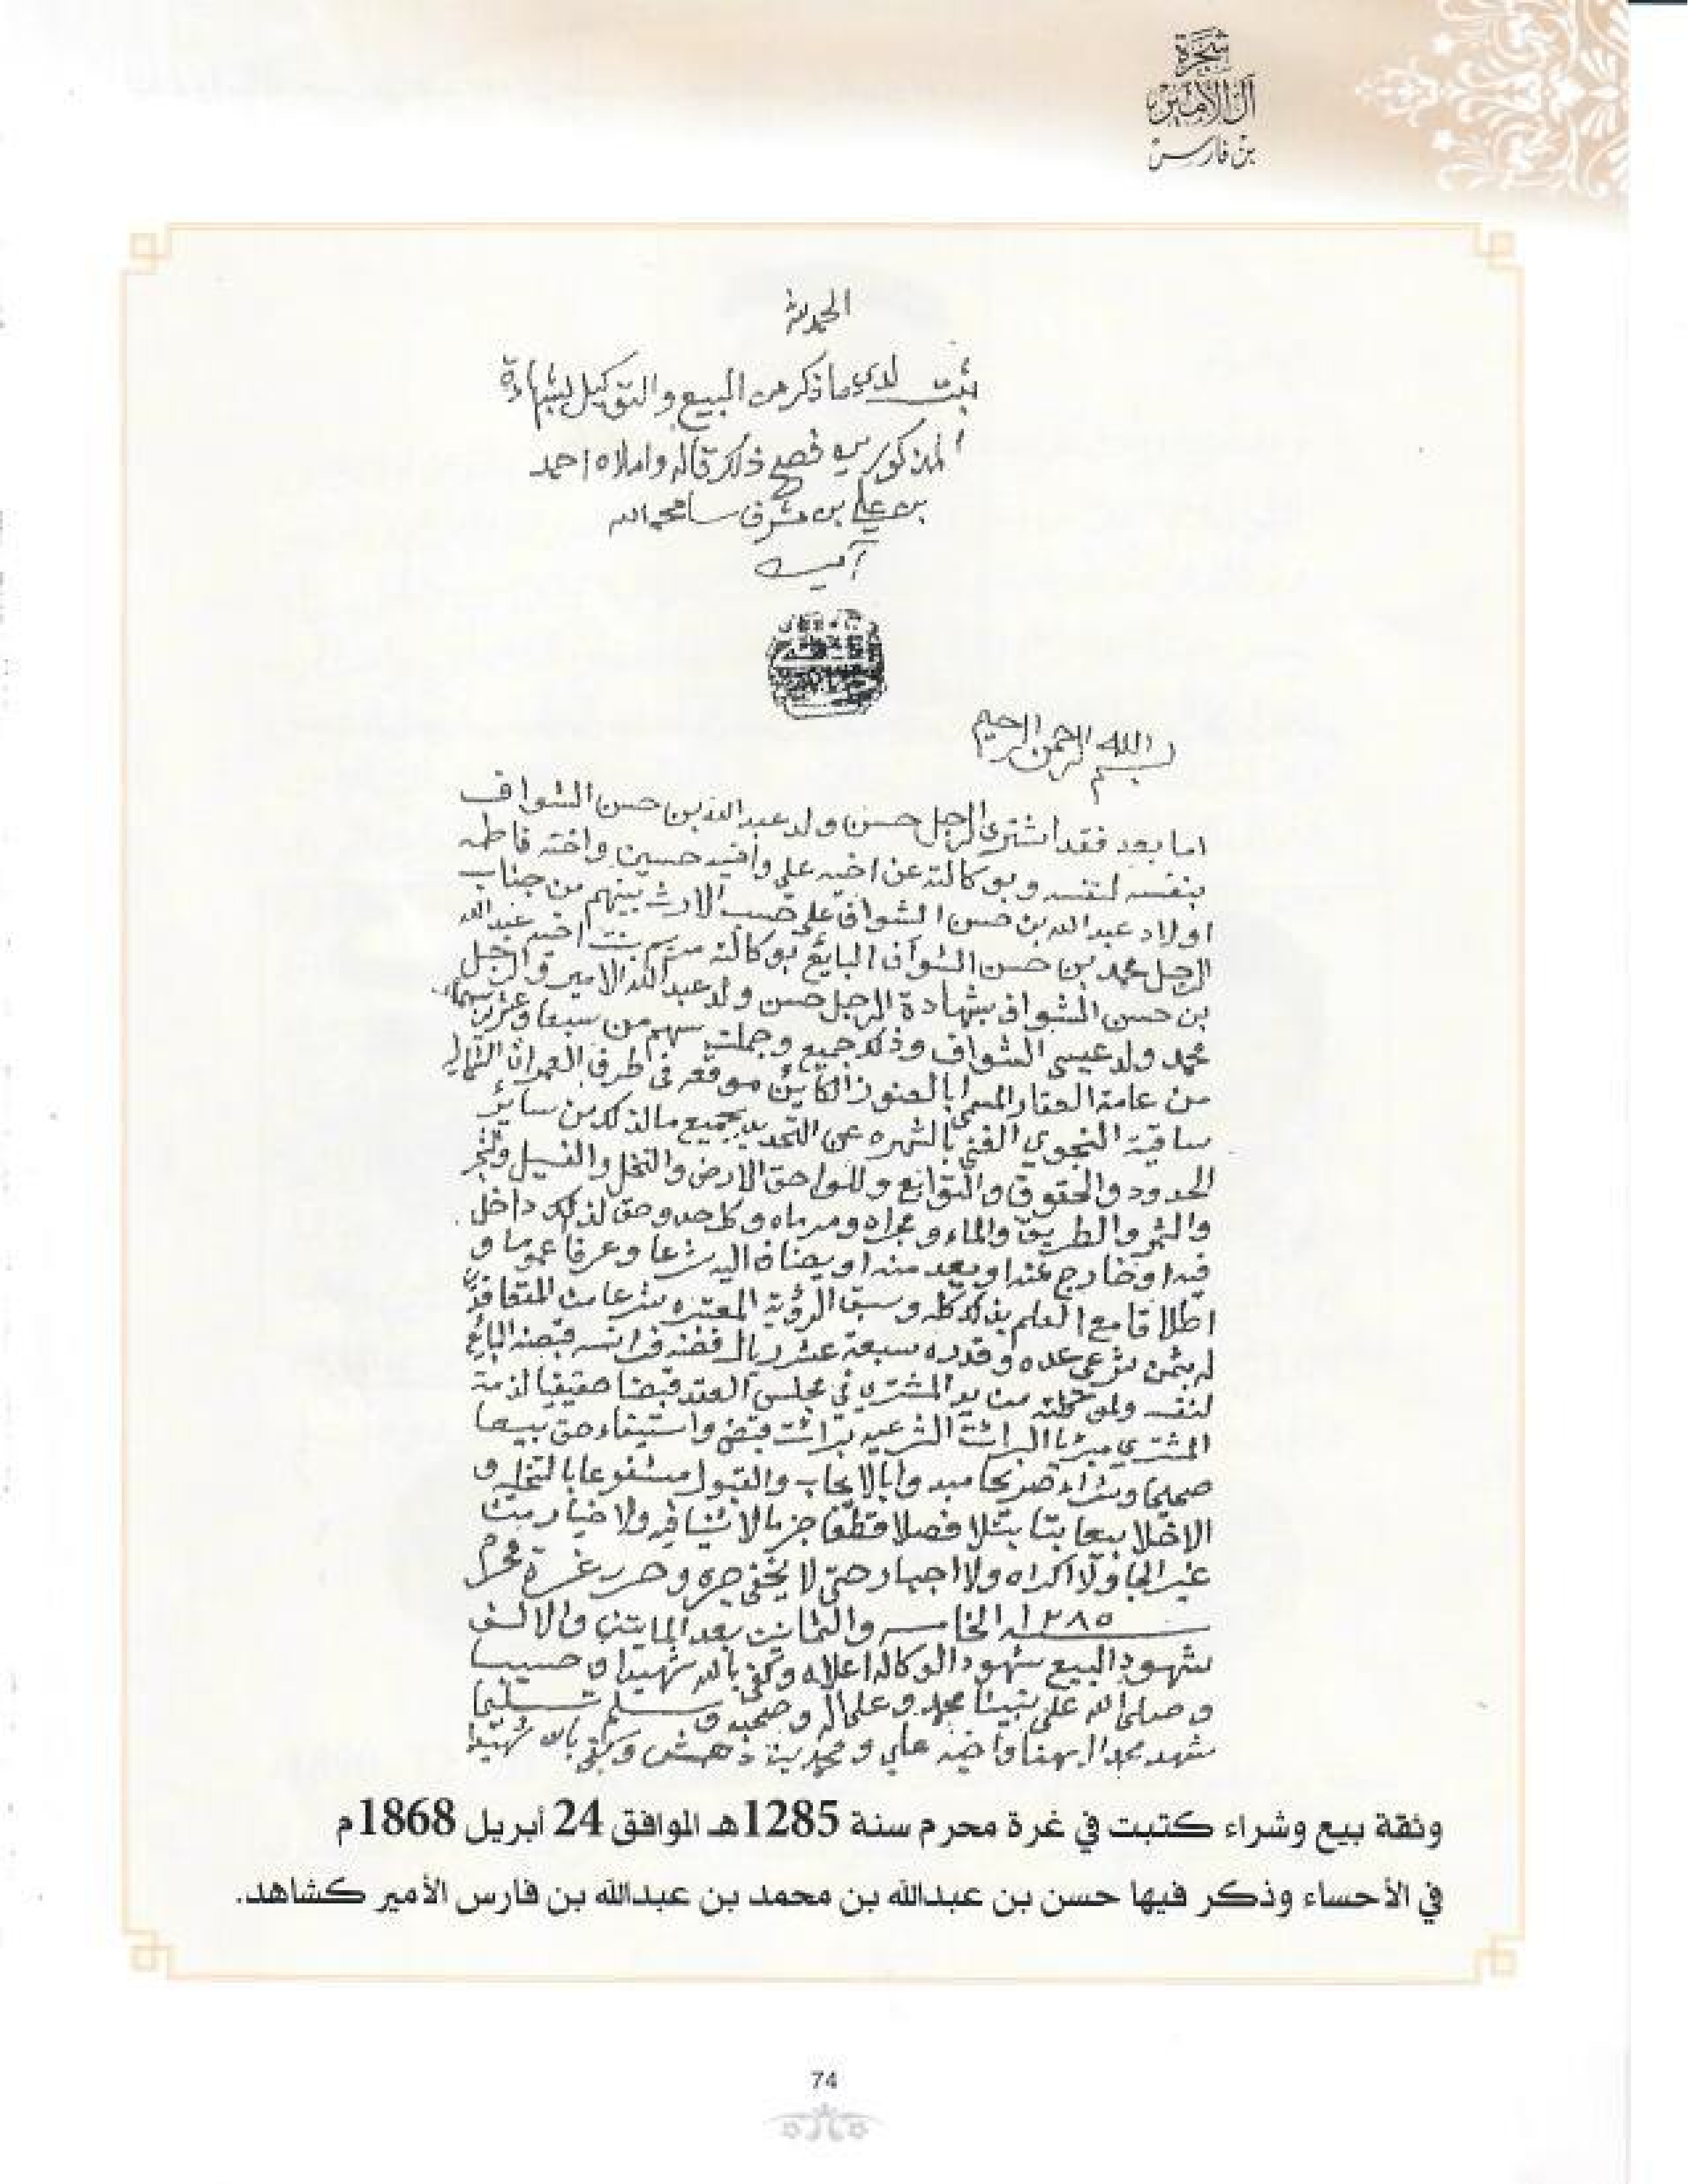 شجرة
آل الأمير
بن فارس
الحمد لله
ثبت لدي ما ذكر من البيع والتوكيل بشهادة
المذكورين فصح ذلك قاله واملاه احمد
بن علي بن مشرف سامحه الله
آمين
بسم الله الرحمن الرحيم
اما بعد فقد اشترى الرجل حسن ولد عبد الله بن حسن الشواف
بنفسه لنفسه وبوكالته عن اخيه علي واخيه حسين واخته فاطمه
اولاد عبد الله بن حسن الشواف على حسب الارث بينهم من جناب
الرجل محمد بن حسن الشواف البايع بوكالته مريم بنت اخيه عبد الله
بن حسن الشواف بشهادة الرجل حسن ولد عبد الله الامير والرجل
محمد ولد عيسى الشواف وذلك جميع وجملت سهم من سبعا وعشرين سهما
من عامة العقار المسمى بالعنوز الكاين موقعه في طرف العمران الشمالي
ساقية النجوي الغني بالشهره عن التحديد بجميع مالذلك من ساير
الحدود والحقوق والتوابع وللواحق الارض والنخل والفسيل والشجر
والثمر والطريق والماء ومجراه ومرماه وكل حد وحق لذلك داخل
فيه او خارج عنه او يعد منه او يضاف اليه شرعا وعرفا عموما و
اطلاقا مع العلم بذلك كله وسبق الرؤية المعتبره شرعا من المتعاقدين
له بثمن شرعي عده وقدره سبعة عشر ريال فضه فرانسه قبضه البايع
لنفسه من يد المشتري في مجلس العقد قبضا حقيقيا لذمة
المشتري مبرئا البرائت الشرعيه برائت قبض واستيفاء حق بيعا
صحيحا وشراء صريحا بالايجاب والقبول مشفوعا بالتخليه و
الاخلا بيعا بتا بتلا فصلا قطعا جزما لا ثنيا فيه ولا خيار
غير الجا ولا اكراه ولا اجبار حتى لا يخفى جره وحرر غرة محرم
سنه ١٢٨٥ الخامسه والثمانين بعد المايتين والالف
شهود البيع شهود الوكاله اعلاه وكفى بالله شهيدا و حسيبا
وصلى الله على نبينا محمد وعلى اله وصحبه وسلم تسليما
شهد واخيه علي ومحمد بن دهش وكفى بالله شهيدا
وثقة بيع وشراء كتبت في غرة محرم سنة 1285هـ الموافق 24 أبريل 1868م
في الأحساء وذكر فيها حسن بن عبدالله بن محمد بن عبدالله بن فارس الأمير كشاهد.
74